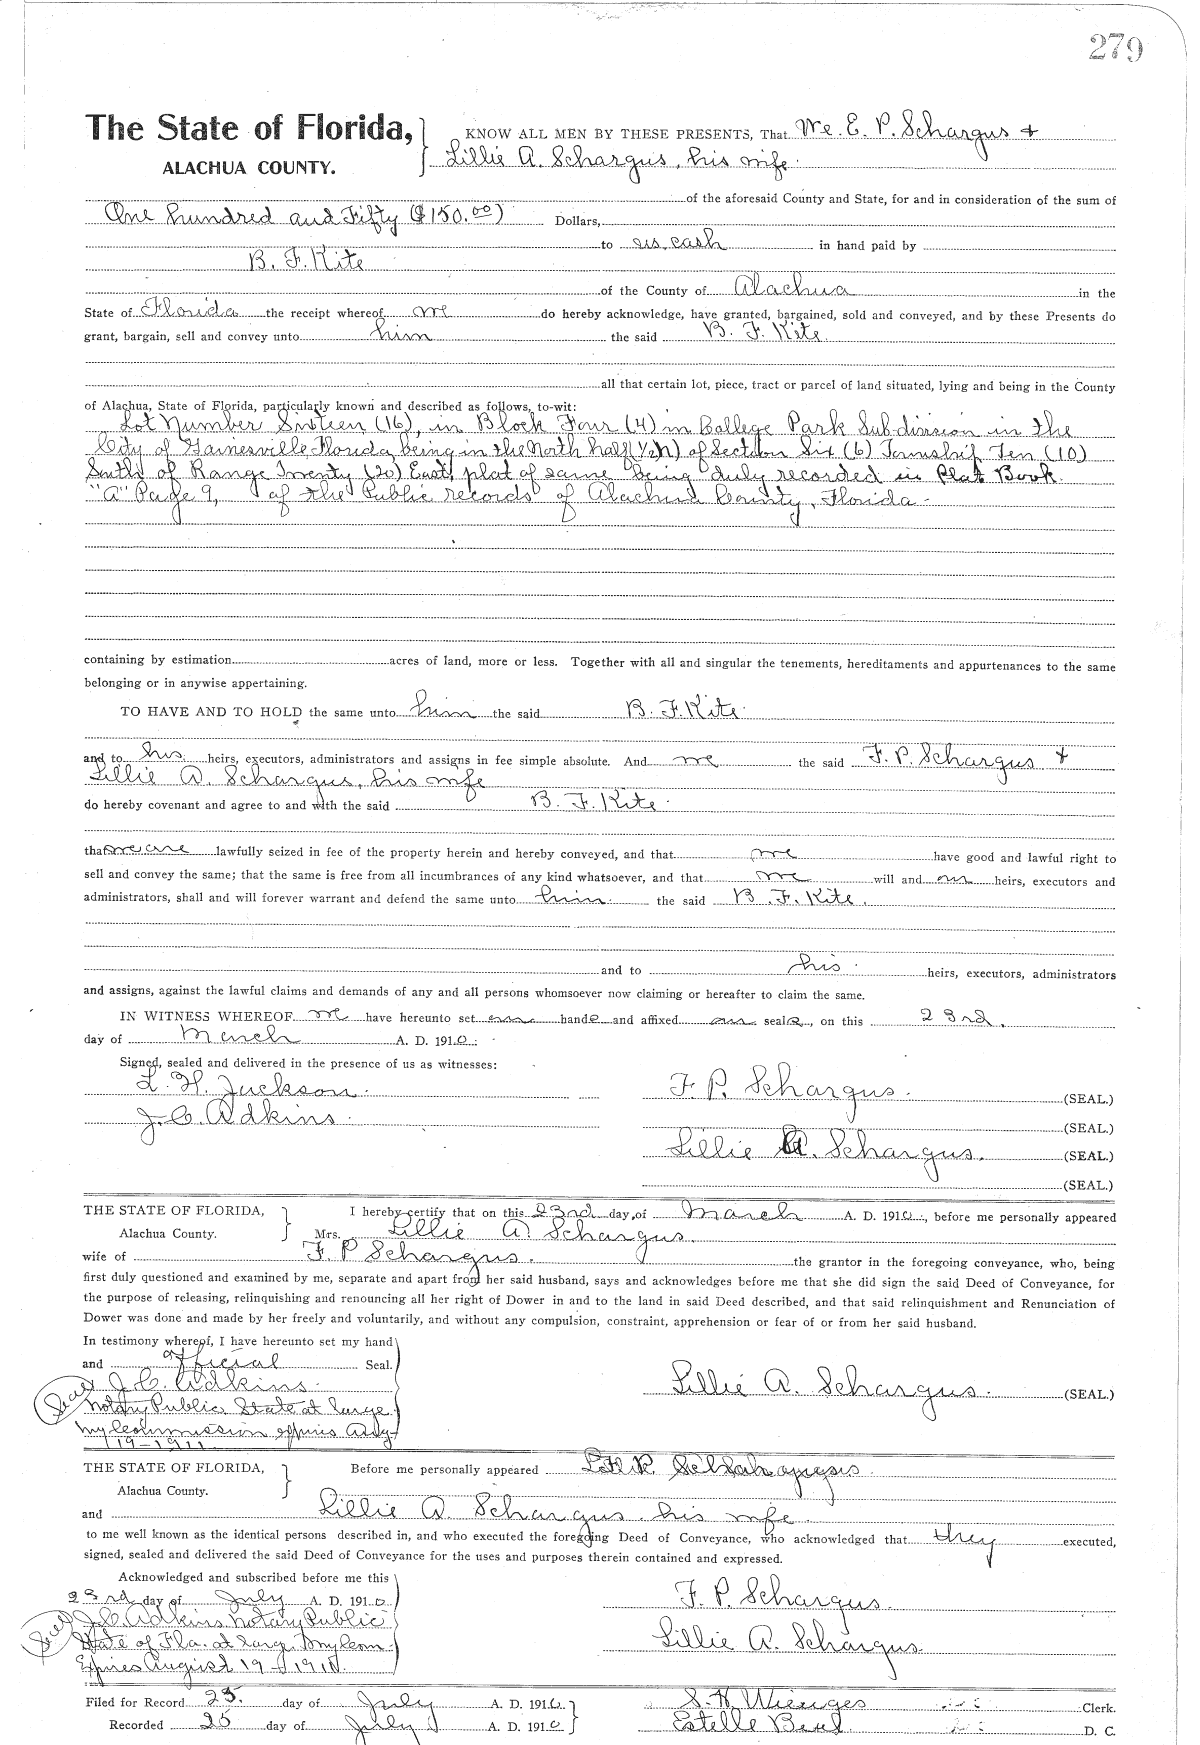 279
The State of Florida, KNOW ALL MEN BY THESE PRESENTS, That We. E. P. Schargus +
ALACHUA COUNTY. Lillie A. Schargus, his wife.
of the aforesaid County and State, for and in consideration of the sum of
One hundred and Fifty ($150.00) Dollars,
to us cash in hand paid by
B. F. Kite
of the County of Alachua in the
State of Florida the receipt whereof we do hereby acknowledge, have granted, bargained, sold and conveyed, and by these Presents do
grant, bargain, sell and convey unto him the said B. F. Kite.
all that certain lot, piece, tract or parcel of land situated, lying and being in the County
of Alachua, State of Florida, particularly known and described as follows, to-wit:
Lot Number Sixteen (16), in Block Four (4) in College Park Subdivision in the
City of Gainesville Florida, being in the North half (½n) of Section Six (6) Township Ten (10)
South of Range Twenty (20) East, plat of same being duly recorded in Plat Book
"A" Page 9, of the Public records of Alachua County, Florida.
containing by estimation acres of land, more or less. Together with all and singular the tenements, hereditaments and appurtenances to the same
belonging or in anywise appertaining.
TO HAVE AND TO HOLD the same unto him the said B. F. Kite.
and to his heirs, executors, administrators and assigns in fee simple absolute. And we the said F. P. Schargus +
Lillie A. Schargus, his wife
do hereby covenant and agree to and with the said B. F. Kite.
that we are lawfully seized in fee of the property herein and hereby conveyed, and that we have good and lawful right to
sell and convey the same; that the same is free from all incumbrances of any kind whatsoever, and that we will and our heirs, executors and
administrators, shall and will forever warrant and defend the same unto him the said B. F. Kite.
and to his heirs, executors, administrators
and assigns, against the lawful claims and demands of any and all persons whomsoever now claiming or hereafter to claim the same.
IN WITNESS WHEREOF we have hereunto set our hands and affixed our seals, on this 23rd.
day of March A. D. 1910.
Signed, sealed and delivered in the presence of us as witnesses:
L. H. Jackson. F. P. Schargus. (SEAL.)
J. C. Adkins. (SEAL.)
Lillie A. Schargus. (SEAL.)
(SEAL.)
THE STATE OF FLORIDA, I hereby certify that on this 23rd day of March A. D. 1910, before me personally appeared
Alachua County. Mrs. Lillie A. Schargus.
wife of F. P Schargus. the grantor in the foregoing conveyance, who, being
first duly questioned and examined by me, separate and apart from her said husband, says and acknowledges before me that she did sign the said Deed of Conveyance, for
the purpose of releasing, relinquishing and renouncing all her right of Dower in and to the land in said Deed described, and that said relinquishment and Renunciation of
Dower was done and made by her freely and voluntarily, and without any compulsion, constraint, apprehension or fear of or from her said husband.
In testimony whereof, I have hereunto set my hand
and official Seal.
Seal J. C. Adkins. Lillie A. Schargus. (SEAL.)
Notary Public State at large
my Commission expires Aug-
19-1911
THE STATE OF FLORIDA, Before me personally appeared
Alachua County.
and Lillie A. Schargus his wife
to me well known as the identical persons described in, and who executed the foregoing Deed of Conveyance, who acknowledged that they executed,
signed, sealed and delivered the said Deed of Conveyance for the uses and purposes therein contained and expressed.
Acknowledged and subscribed before me this
23rd day of July A. D. 1910. F. P. Schargus.
Seal J. C. Adkins Notary Public
State of Fla. at large. My Com. Lillie A. Schargus.
Expires August 19-1911.
Filed for Record 25. day of July A. D. 1910. S. H. Wienges Clerk.
Recorded 25 day of July A. D. 1910 Estelle D. C.